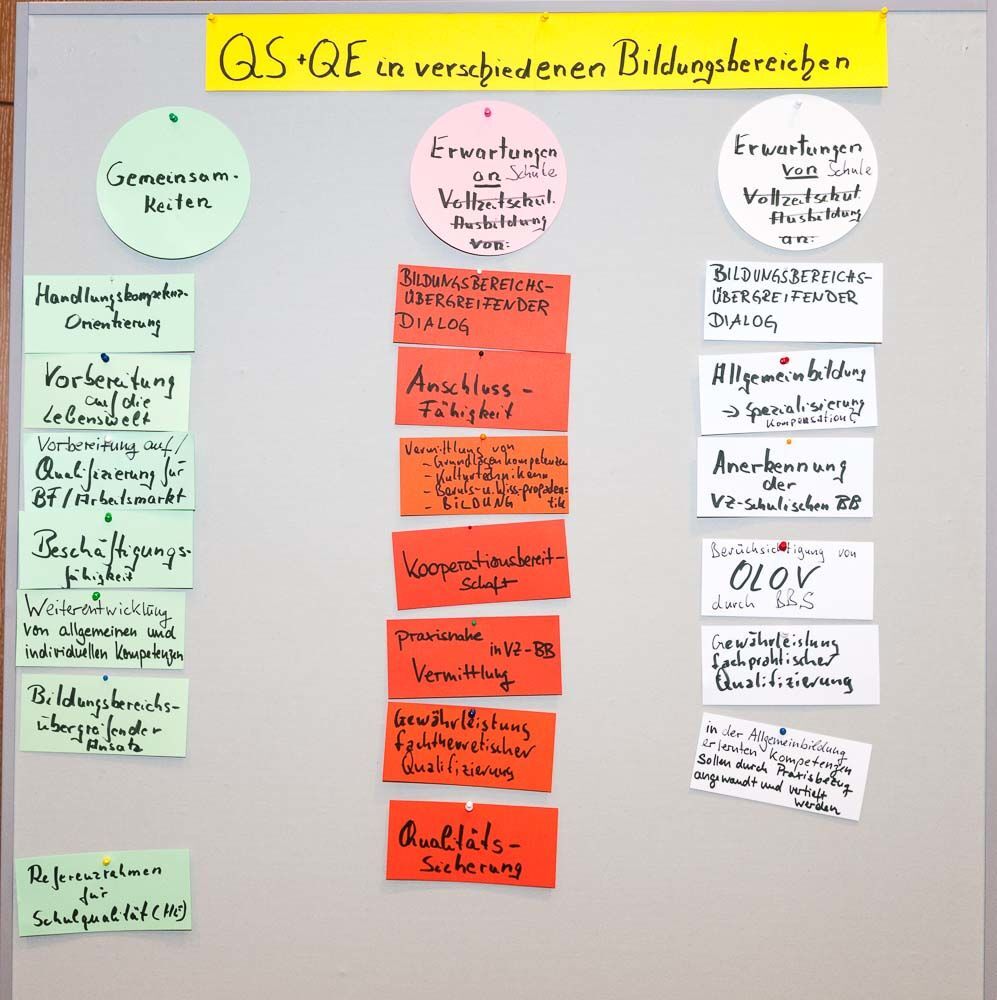 QS + QE in verschiedenen Bildungsbereichen
Gemeinsam-
keiten
Handlungskompetenz-
Orientierung
Vorbereitung
auf die
Lebenswelt
Vorbereitung auf/
Qualifizierung für
BF/Arbeitsmarkt
Beschäftigungs-
fähigkeit
Weiterentwicklung
von allgemeinen und
individuellen Kompetenzen
Bildungsbereichs-
übergreifender
Ansatz
Referenzrahmen
für
Schulqualität (HE)
Erwartungen
an Schule
Vollzeitschul.
Ausbildung
von:
BILDUNGSBEREICHS-
ÜBERGREIFENDER
DIALOG
Anschluss-
Fähigkeit
Vermittlung von
- Grundlagenkompetenzen
- Kulturtechniken
- Berufs- u. Wiss-propädeu-
- BILDUNG tik
Kooperationsbereit-
schaft
praxisnahe
in VZ-BB
Vermittlung
Gewährleistung
fachtheoretischer
Qualifizierung
Qualitäts-
Sicherung
Erwartungen
von Schule
Vollzeitschul.
Ausbildung
an:
BILDUNGSBEREICHS-
ÜBERGREIFENDER
DIALOG
Allgemeinbildung
→ Spezialisierung
Kompensation
Anerkennung
der
VZ-Schulischen BB
Berücksichtigung von
OLOV
durch BBS
Gewährleistung
fachpraktischer
Qualifizierung
in der Allgemeinbildung
erlernten Kompetenzen
sollen durch Praxisbezug
angewandt und vertieft
werden